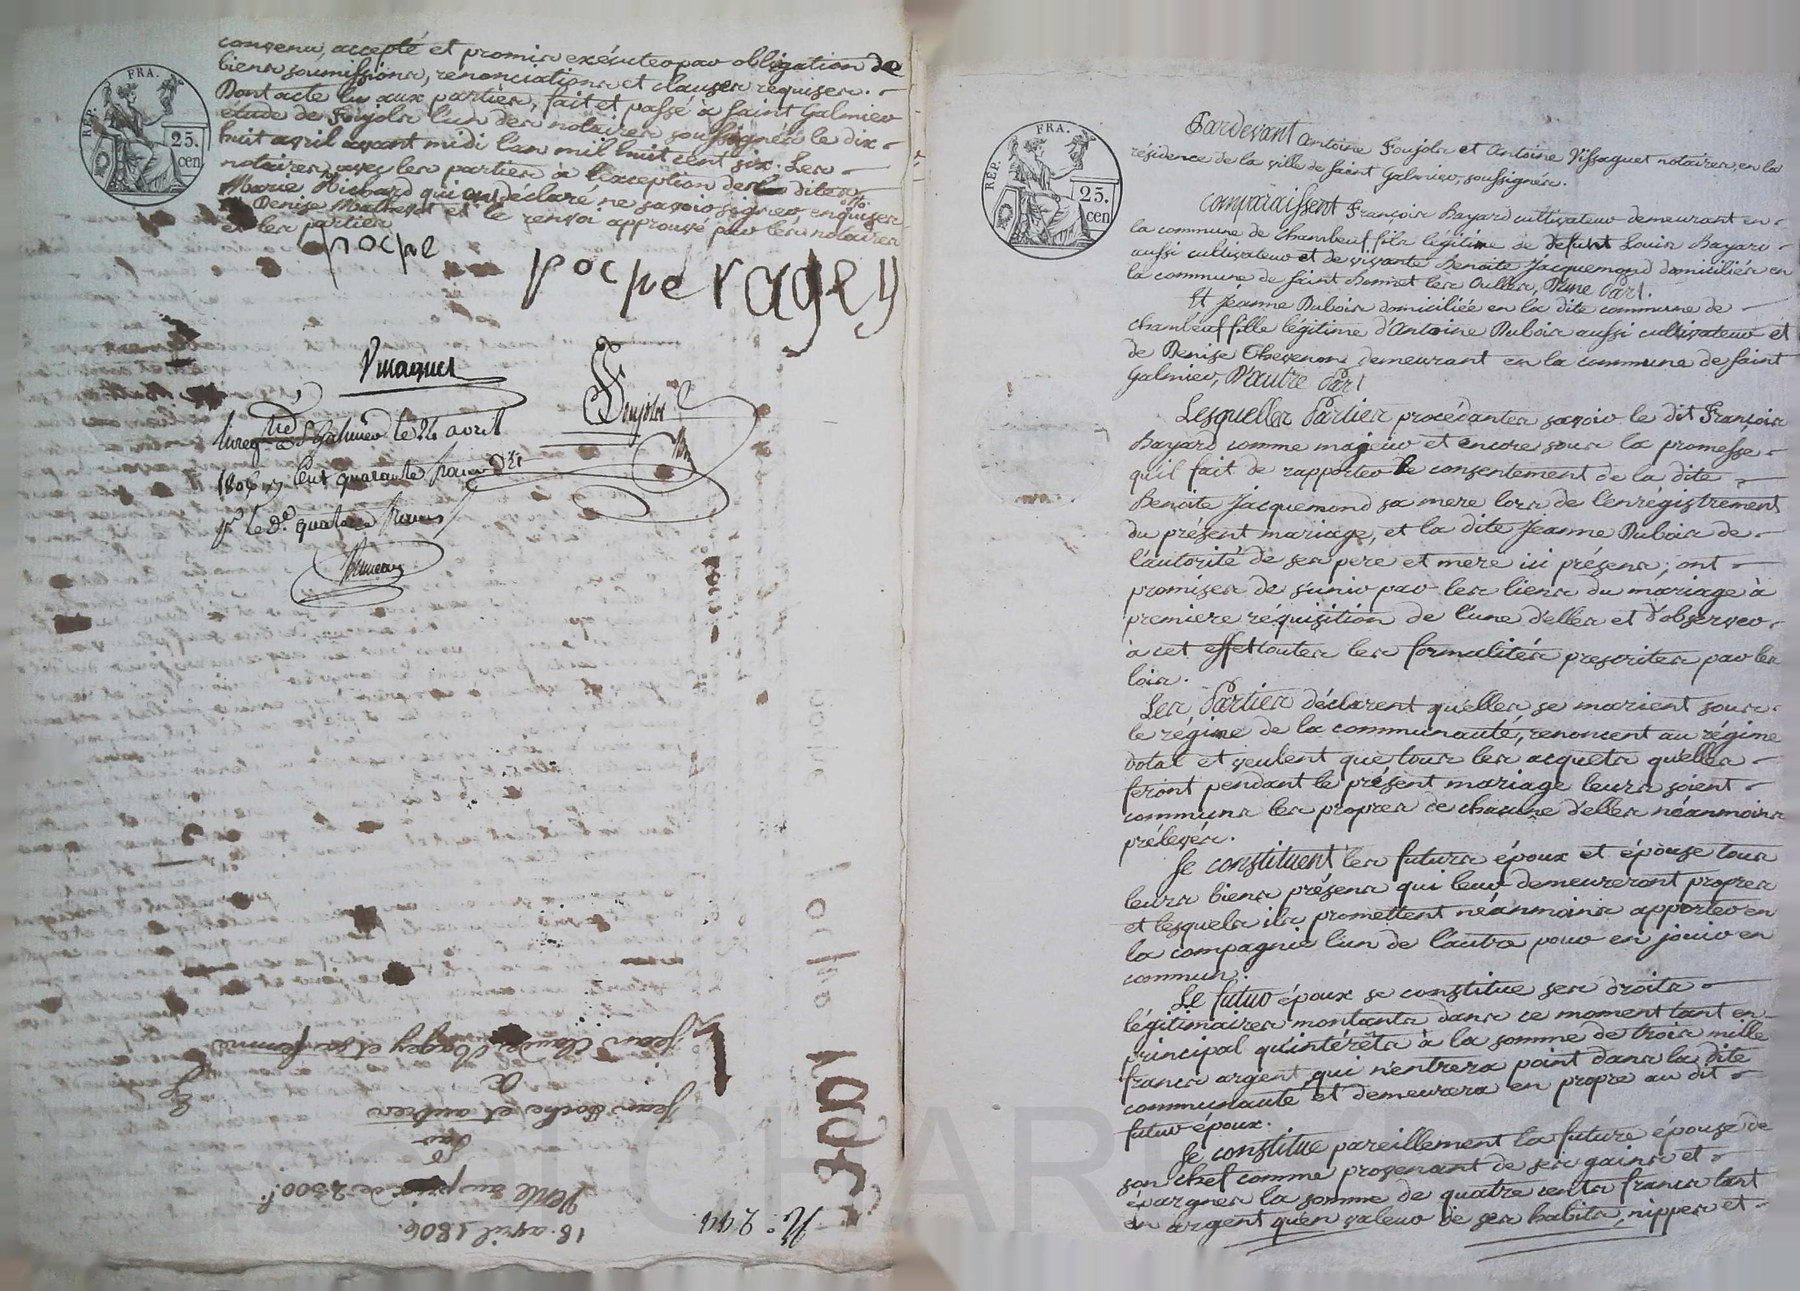 REP. FRA.
25.
cen
convenu, accepté et promis exécuter par obligation de
biens soumissions, renonciations et clauses requises.
Dont acte lu aux parties, fait et passé à Saint Galmier
étude de Foujols l'un des notaires soussignés le dix
huit avril avant midi l'an mil huit cent six. Les
notaires avec les parties à l'exception des dites
Marie Richard qui ont déclaré ne savoir signer, enquises
Denise et le renvoi approuvé par les notaires
et les parties
poche
poche ragey
Foujols
Enreg. à St Galmier le 24 avril
1806 cent quarante francs
pr. le d.e quatorze francs
Jean Claude Ragey et sa femme
à
Jean Poche et autres
par
Vente au prix de 2300 f.
18. avril 1806.
REP. FRA.
25.
cen
Pardevant Antoine Foujols et Antoine Vissaguet notaires, en la
résidence de la ville de Saint Galmier, soussignés.
Comparaissent François Bayard cultivateur demeurant en
la commune de Chambeuf, fils légitime de defunt Louis Bayard
aussi cultivateur et de vivante Benoite Jacquemond domiciliés en
la commune de Saint Bonnet les Oulles, D'une Part.
Et Jeanne Dubois domiciliée en la dite commune de
Chambeuf fille légitime d'Antoine Dubois aussi cultivateur et
de Denise Thevenon demeurant en la commune de Saint
Galmier, D'autre Part
Lesquelles Parties procédantes savoir le dit François
Bayard comme majeur et encore sous la promesse
qu'il fait de rapporter le consentement de la dite
Benoite Jacquemond sa mere lors de l'enrégistrement
du présent mariage, et la dite Jeanne Dubois de
l'autorité de ses pere et mere ici présens; ont
promises de s'unir par les liens du mariage à
premiere réquisition de l'une d'elles et d'observer
à cet effet toutes les formalités prescrites par les
loix.
Les Parties déclarent qu'elles se marient sous
le régime de la communauté, renoncent au régime
dotal et veulent que tous les acquets qu'elles
feront pendant le présent mariage leurs soient
communs les propres de chacune d'elles néanmoins
prélevés.
Se constituent les futurs époux et épouse tous
leurs biens présens qui leur demeureront propres
et lesquels ils promettent néanmoins apporter en
la compagnie l'un de l'autre pour en jouir en
commun.
Le futur époux se constitue ses droits
légitimaires montants dans ce moment tant en
principal qu'intérêts à la somme de trois mille
francs argent, qui n'entrera point dans la dite
communauté et demeurera en propre au dit
futur époux.
Se constitue pareillement la future épouse de
son chef comme provenant de ses gains et
épargnes la somme de quatre cents francs tant
en argent qu'en valeur de ses habits, nippes et